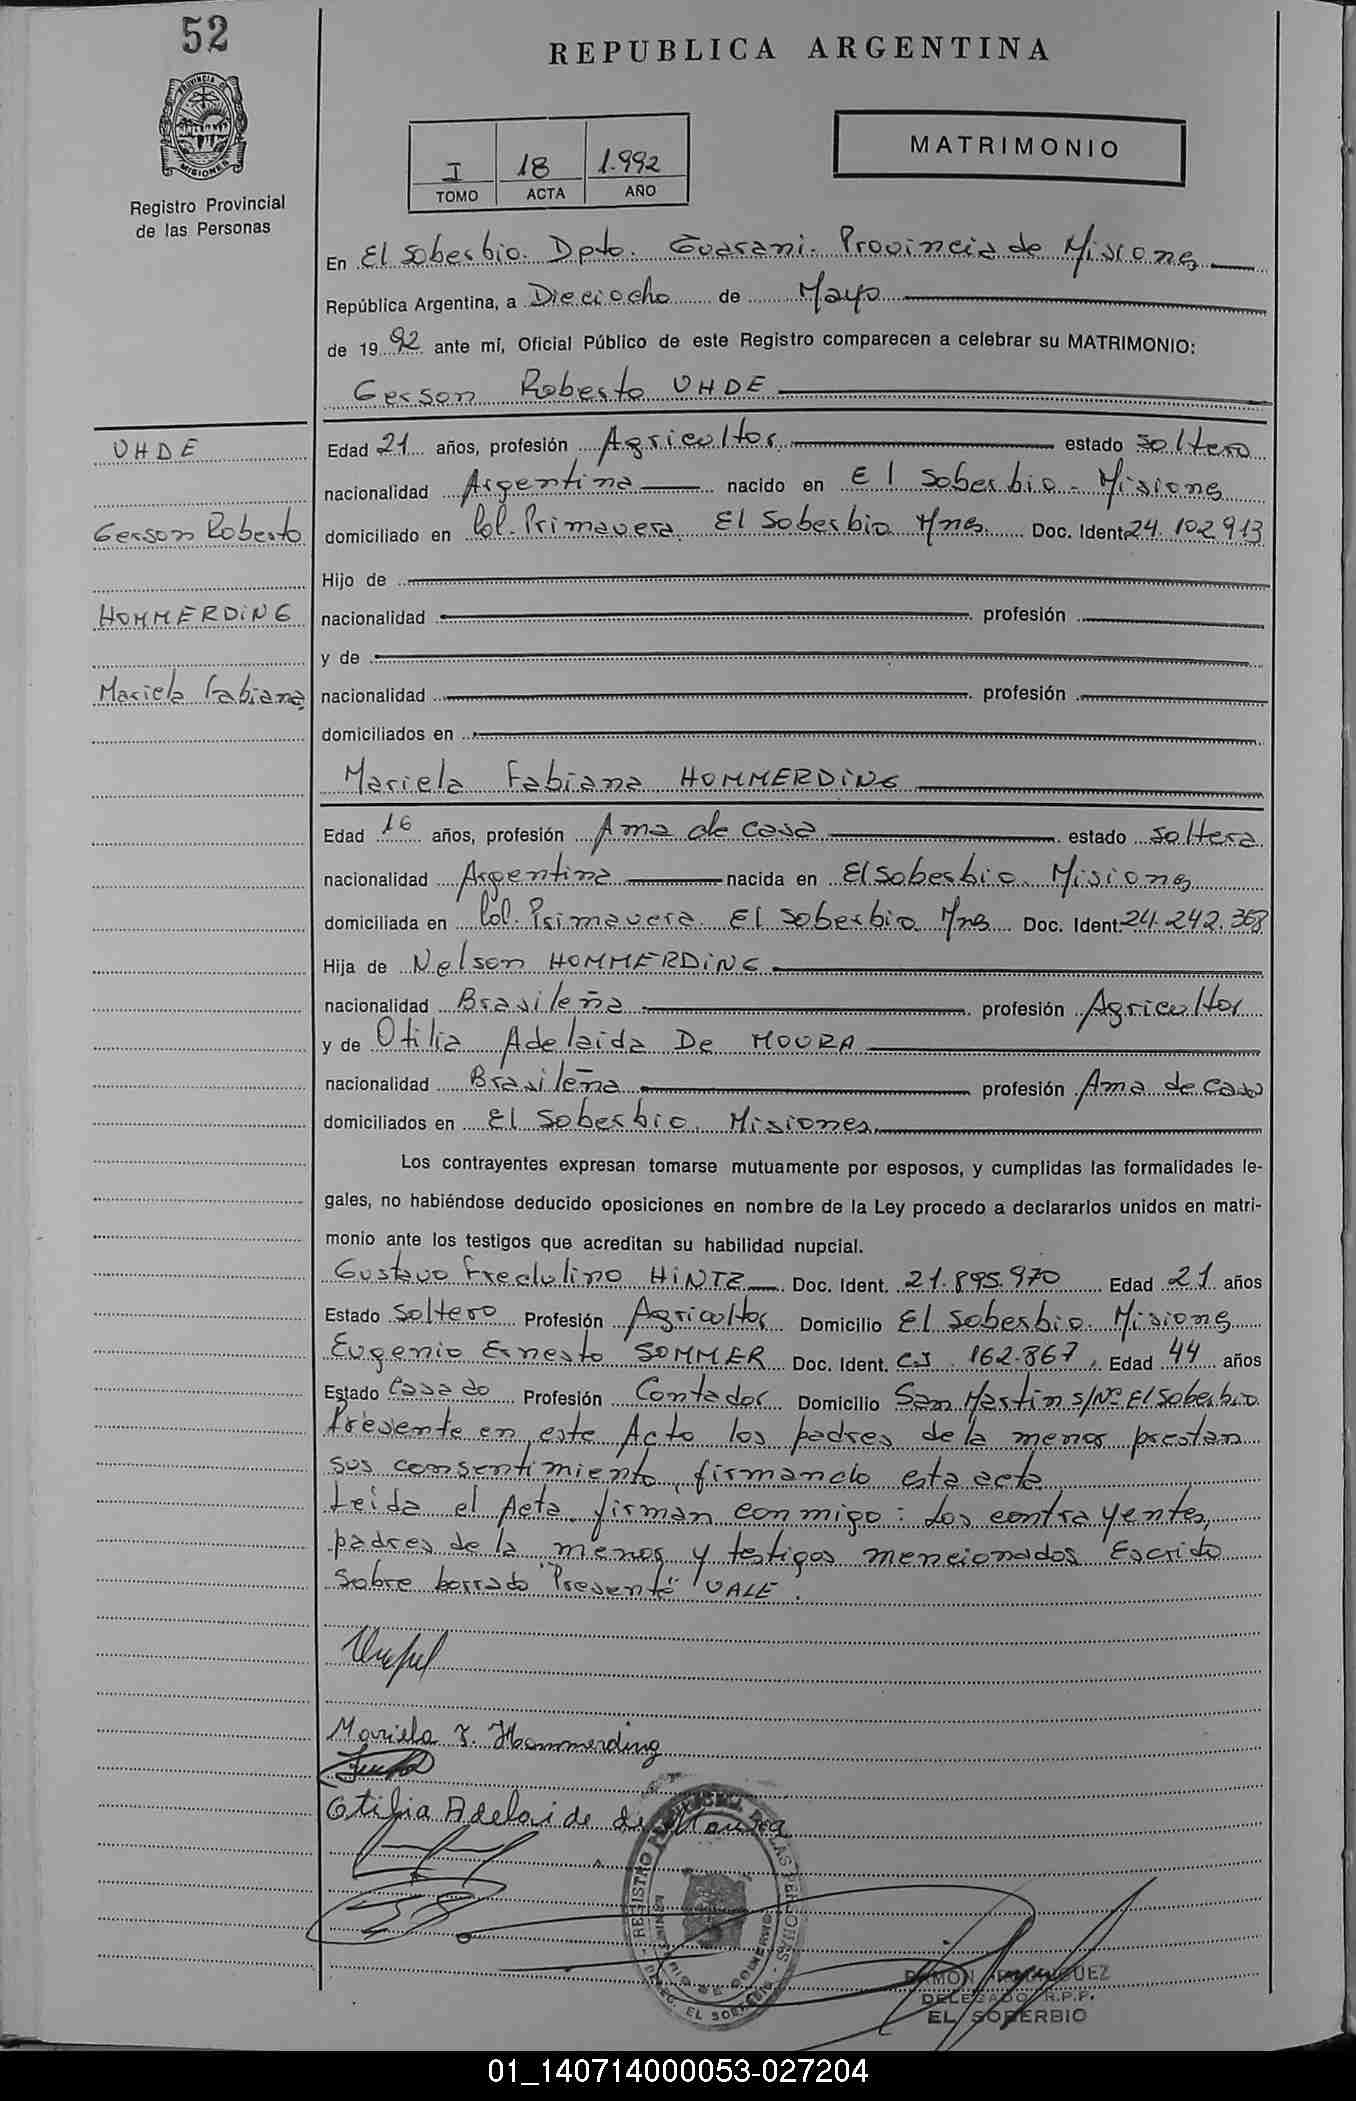 52
REPUBLICA ARGENTINA
PROVINCIA DE
MISIONES
Registro Provincial
de las Personas
I 18 1.992
TOMO ACTA AÑO
MATRIMONIO
En El Soberbio. Dpto. Guarani. Provincia de Misiones
República Argentina, a Dieciocho de Mayo
de 1992 ante mí, Oficial Público de este Registro comparecen a celebrar su MATRIMONIO:
Gerson Roberto UHDE
UHDE
Gerson Roberto
HOMMERDING
Mariela Fabiana
Edad 21 años, profesión Agricultor estado soltero
nacionalidad Argentina nacido en El Soberbio - Misiones
domiciliado en Col. Primavera. El Soberbio Mnes. Doc. Ident. 24.102.913
Hijo de
nacionalidad profesión
y de
nacionalidad profesión
domiciliados en
Mariela Fabiana HOMMERDING
Edad 16 años, profesión Ama de casa estado soltera
nacionalidad Argentina nacida en El Soberbio. Misiones
domiciliada en Col. Primavera. El Soberbio Mnes Doc. Ident. 24.242.368
Hija de Nelson HOMMERDING
nacionalidad Brasileña profesión Agricultor
y de Otilia Adelaida De MOURA
nacionalidad Brasileña profesión Ama de casa
domiciliados en El Soberbio. Misiones
Los contrayentes expresan tomarse mutuamente por esposos, y cumplidas las formalidades le-
gales, no habiéndose deducido oposiciones en nombre de la Ley procedo a declararlos unidos en matri-
monio ante los testigos que acreditan su habilidad nupcial.
Gustavo Fredolino HINTZ Doc. Ident. 21.895.970 Edad 21 años
Estado soltero Profesión Agricultor Domicilio El Soberbio. Misiones
Eugenio Ernesto SOMMER Doc. Ident. C.I. 162.867, Edad 44 años
Estado Casado Profesión Contador Domicilio San Martin S/Nº El Soberbio
Presente en este Acto los padres de la menor prestan
sus consentimiento, firmando esta acta
Leida el Acta, firman conmigo: Los contrayentes,
padres de la menor y testigos mencionados Escrito
sobre borrado "Presente" VALE.
Mariela F. Hommerding
Otilia Adelaide de Moura
REGISTRO PROVINCIAL DE LAS PERSONAS
MINISTERIO DE GOBIERNO
DELEG. EL SOBERBIO
RAMON
DELEGADO R.P.P.
EL SOBERBIO
01_140714000053-027204